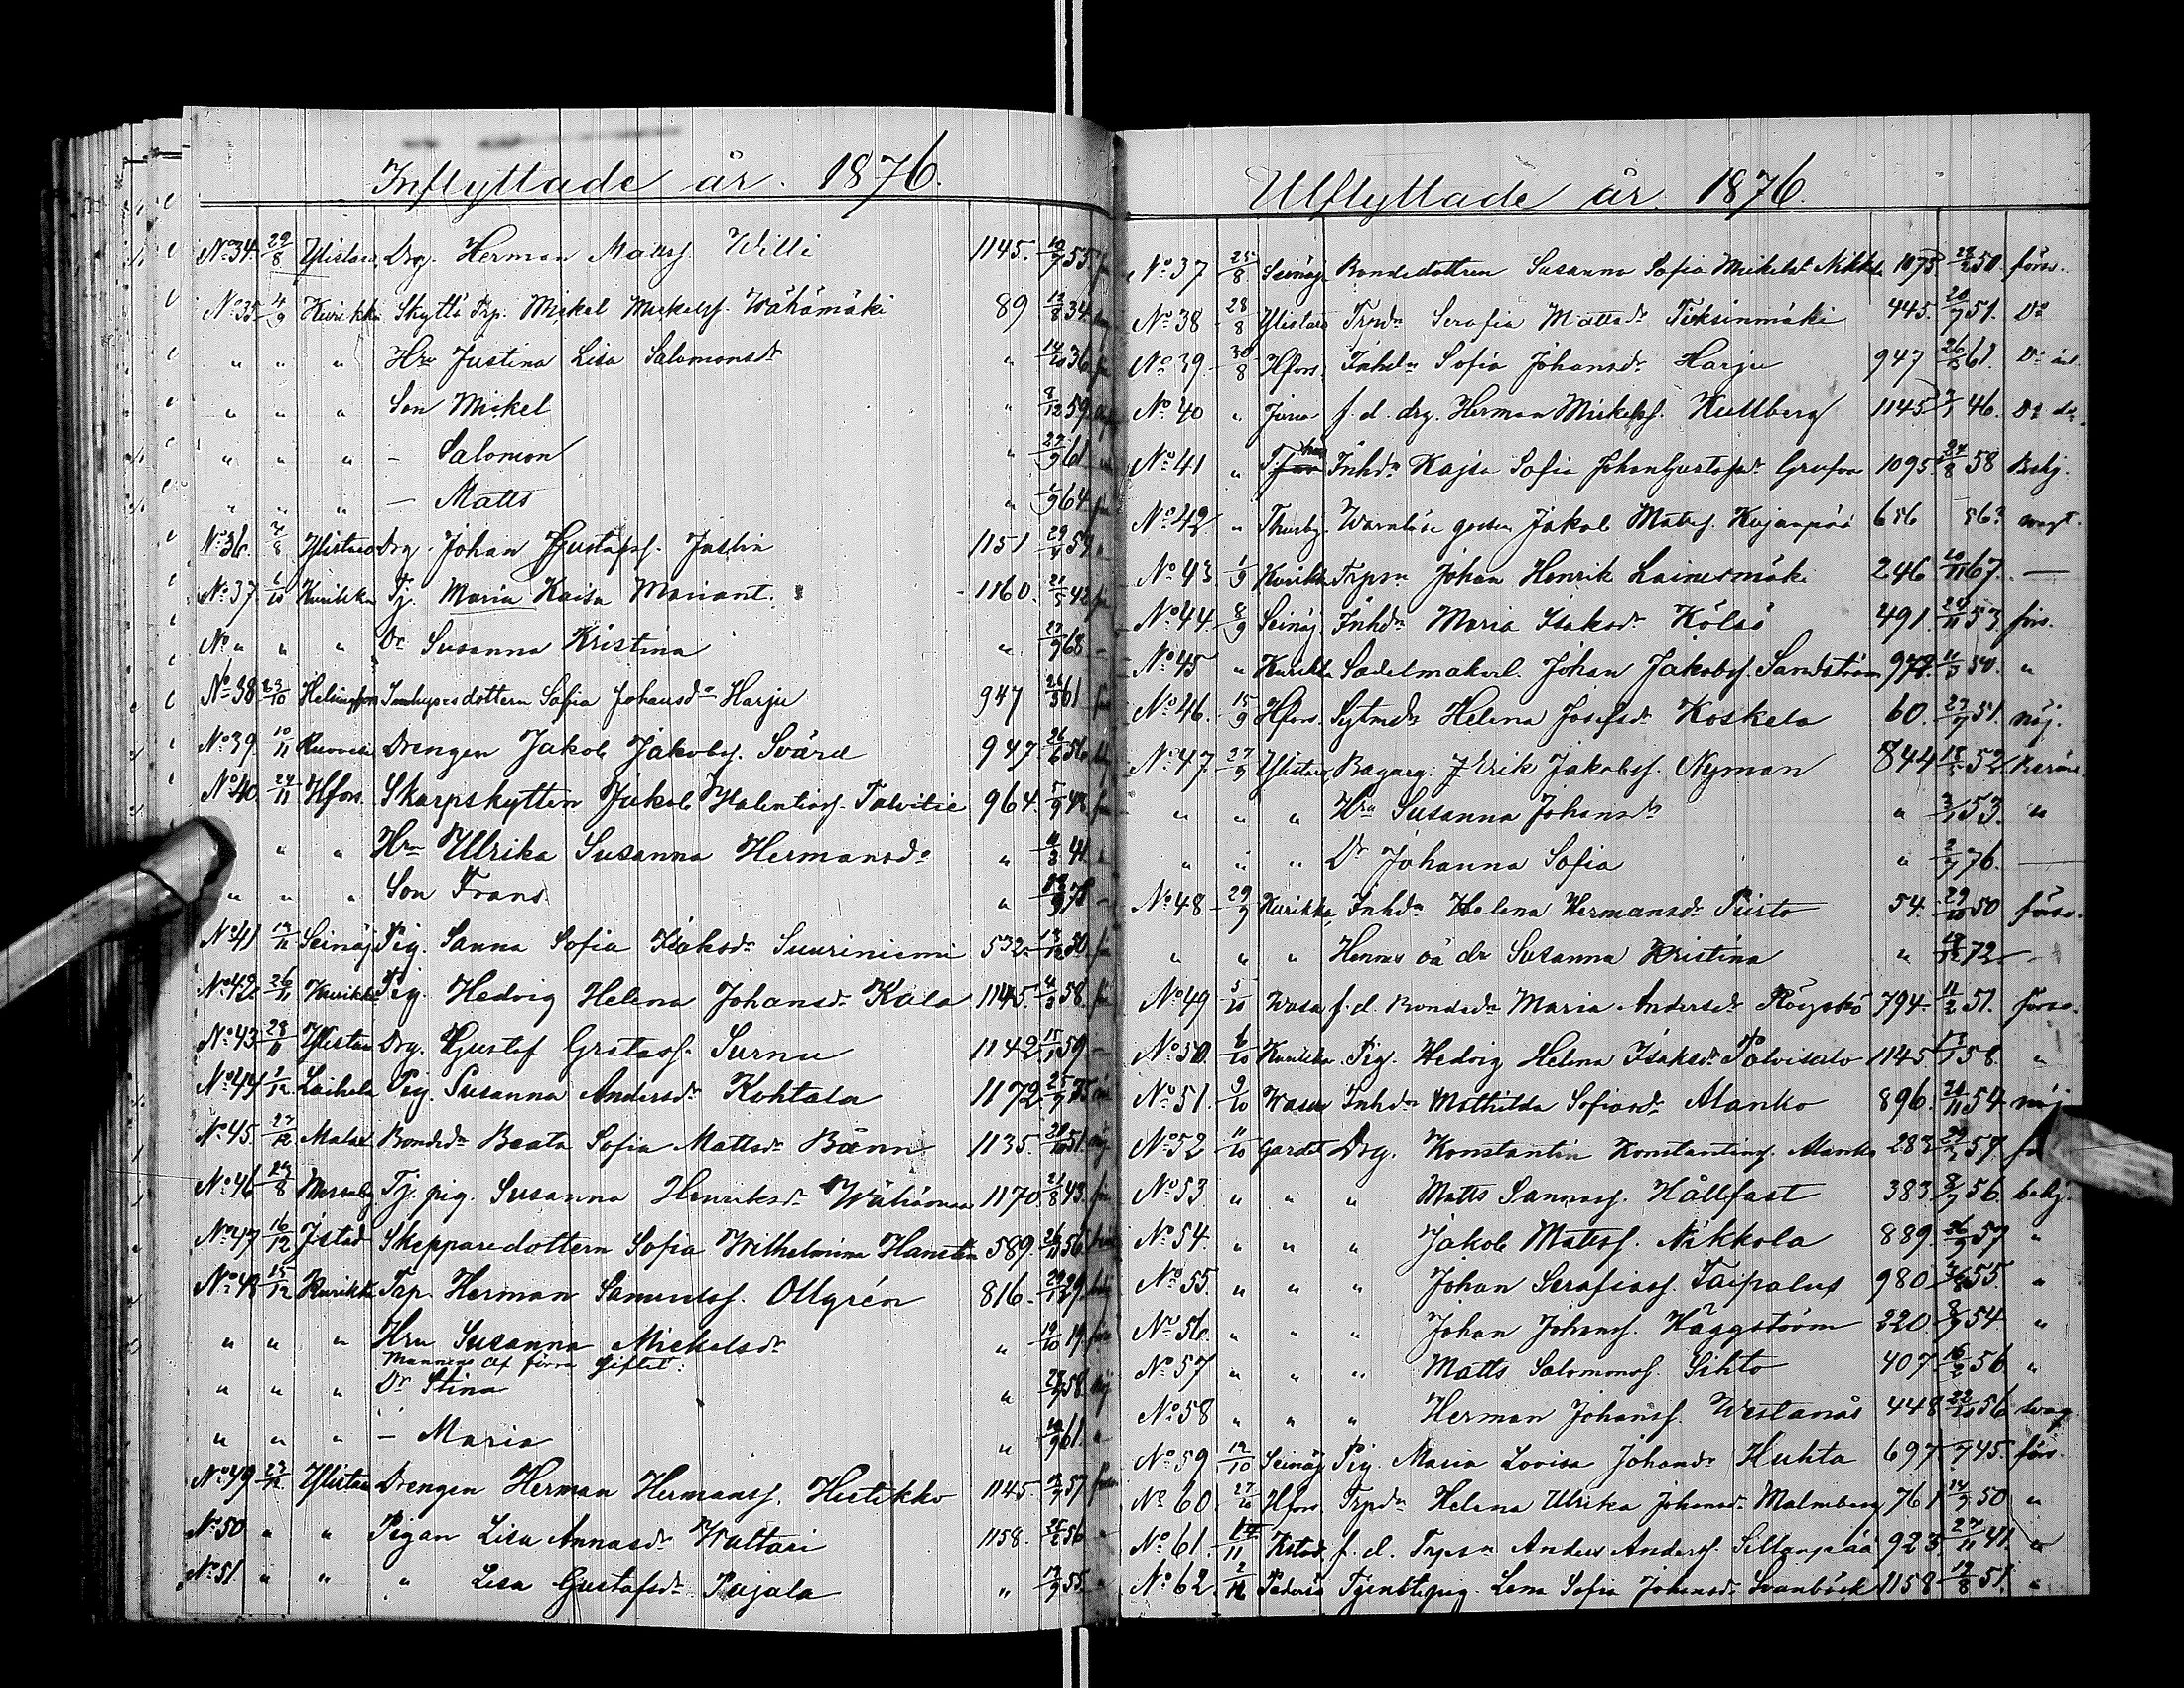 Inflyttade år 1876.
No 34 29/8 Ylistaro Drg. Herman Mattsf. Willi 1145. 10/7 55
No 35 4/9 Kurikka Skytte Trp. Mickel Mickelsf. Wähämäki 89 12/8 34
" " " Hru Justina Lisa Salomonsdr " 14/10 36
" " " Son Mickel " 8/12 59
" " " – Salomon " 27/9 61
" " " – Matts " 1/9 64
No 36. 7/8 Ylistaro Drg. Johan Gustafsf. Jaslin 1151 29/4 59
No 37. 6/10 Kurikka Tj. Maria Kaisa Mariant. 1160. 21/5 42
No " " " Dr Susanna Kristina " 27/9 68 –
No 38 23/10 Helsingfors Inhysesdottern Sofia Johansdr Harju 947 26/3 61
No 39. 10/11 Drengen Jakob Jakobsf. Svärd 947. 26/6 56
No 40. 24/11 Hfors. Skarpskytten Jakob Valentinsf. Talvitie 964. 5/9 48
" " Hru Ulrika Susanna Hermansdr " 11/3 41
" " " Son Frans "
No 41 Seinäj. Pig. Sanna Sofia Isaksdr Suuriniemi 532. 50
No 42. 26/11 Kurikka Pig. Hedvig Helena Johansdr Kala 1145. 4/3 58
No 43 28/11 Ylistaro Drg. Gustaf Gustafsf. Surnu 1142 15/1 59 –
No 44 2/12 Laihela Pig. Susanna Andersdr Kohtala 1172. 25/9
No 45. 27/12 Malax Bondedr Beata Sofia Mattsdr Bänn 1135. 51
No 46 29/8 Tj. pig. Susanna Henriksdr 1170. 21/8 43
No 47 16/12 J:stad Skepparedottern Sofia Wilhelmina 589. 26/11 56
No 48 15/12 Kurikka Trp. Herman Samuelsf. Ollgrén 816.
" " " Hru Susanna Mickelsdr " 19/10 19
Mannens af förra giftet:
" " " Dr Stina " 58
" " " – Maria " 61
No 49 23/12 Ylistaro Drengen Herman Hermansf. Hietikko 1145. 57
No 50 " " Pigan Lisa Annasdr Wattari 1158. 25/2 56
No 51 " " " Lisa Gustafsdr Pujala " 17/9 55
Utflyttade år 1876.
No 37 25/8 Seinäj. Bondedottren Susanna Sofia Mikelsdr Nikkola 1075 50. förs.
No 38 28/8 Ylistaro Trpdr Serafia Mattsdr Tiksinmäki 445. 20/7 51. Do
No 39. 30/8 Hfors. Inhdr Sofia Johansdr Harju 947 26/3 61. Do
No 40 " Jurva f. d. drg. Herman Mickelsf. Kullberg 1145 46. Do do
No 41 " Inhdr Kajsa Sofia Johan Gustafsdr 1095. 24/8 58 Behj.
No 42 " Thusby. Wärnlöse gossen Jakob Matsf. Kujanpää 656 56?
No 43 1/9 Kurikka Trpsn Johan Henrik Lainesmäki 246 10/11 67. –
No 44. 8/9 Seinäj. Inhdr Maria Isaksdr Kölsö 491. 53 förs.
No 45 " Kurikka Sadelmakarl. Johan Jakobsf. Sandström 978. 50. "
No 46. 15/9 Hfors. Sytmdr Helena Josefsdr Koskela 60. 27/7 51. nöj.
No 47 27/9 Ylistaro Bagareg. Erik Jakobsf. Nyman 844 52
" " " Hru Susanna Johansdr " 53. "
" " " Dr Johanna Sofia " 2/7 76. –
No 48. 29/9 Kurikka, Inhdr Helena Hermansdr Piirto 54. 29/10 50 försv.
" " " Hennes oä dr Susanna Kristina " 72 –
No 49 5/10 Wasa f. d. Bondedr Maria Andersdr 794. 11/2 51. försv.
No 50. 6/10 Kurikka Pig. Hedvig Helena Isaksdr Polvisalo 1145 58. "
No 51. 9/10 Wasa Inhdr Mathilda Sofiasdr Alanko 896. 54
No 52 11/10 Gardet Drg. Konstantin Konstantinsf. Alanko 283. 57
No 53 " " " Matts Sannasf. Hållfast 383. 8/7 56 behj.
No 54. " " " Jakob Mattsf. Nikkola 889. 57 "
No 55. " " " Johan Serafiasf. Taipalus 980. 55 "
No 56. " " " Johan Johansf. Häggström 220. 8/9 54. "
No 57 " " " Matts Salomonsf. Sihto 407. 56 "
No 58 " " " Herman Johansf. Westanås 448. 22/10 56 svag
No 59 12/10 Seinäj. Pig. Maria Lovisa Johansdr Huhta 697 45. förs.
No 60. 27/10 Hfors. Trpdr Helena Ulrika Johansdr Malmberg 761 50 "
No 61. f. d. Trpsn Anders Andersf. Sillanpää 923. 27/11 41. "
No 62. Pedersö Tjenstepig. Lena Sofia Johansdr Svanbäck 1158 19/8 51. "